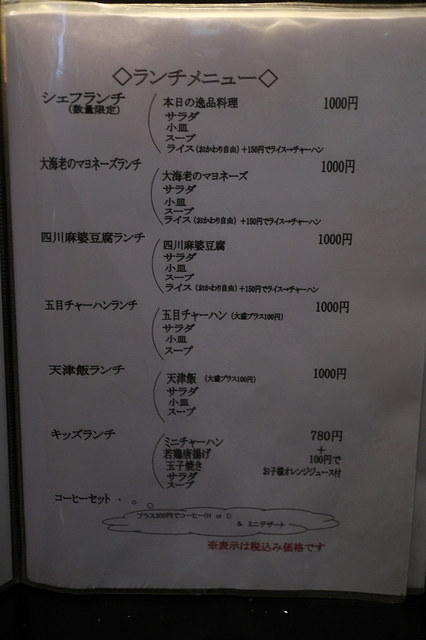 ◇ランチメニュー◇
シェフランチ 本日の逸品料理 1000円
(数量限定) サラダ
小皿
スープ
ライス(おかわり自由)+150円でライス→チャーハン
大海老のマヨネーズランチ 大海老のマヨネーズ 1000円
サラダ
小皿
スープ
ライス(おかわり自由)+150円でライス→チャーハン
四川麻婆豆腐ランチ 四川麻婆豆腐 1000円
サラダ
小皿
スープ
ライス(おかわり自由)+150円でライス→チャーハン
五目チャーハンランチ 五目チャーハン(大盛プラス100円) 1000円
サラダ
小皿
スープ
天津飯ランチ 天津飯 (大盛プラス100円) 1000円
サラダ
小皿
スープ
キッズランチ ミニチャーハン 780円
若鶏唐揚げ +
玉子焼き 100円で
サラダ お子様オレンジジュース付
スープ
コーヒーセット
プラス200円でコーヒー(H or I)
& ミニデザート
※表示は税込み価格です